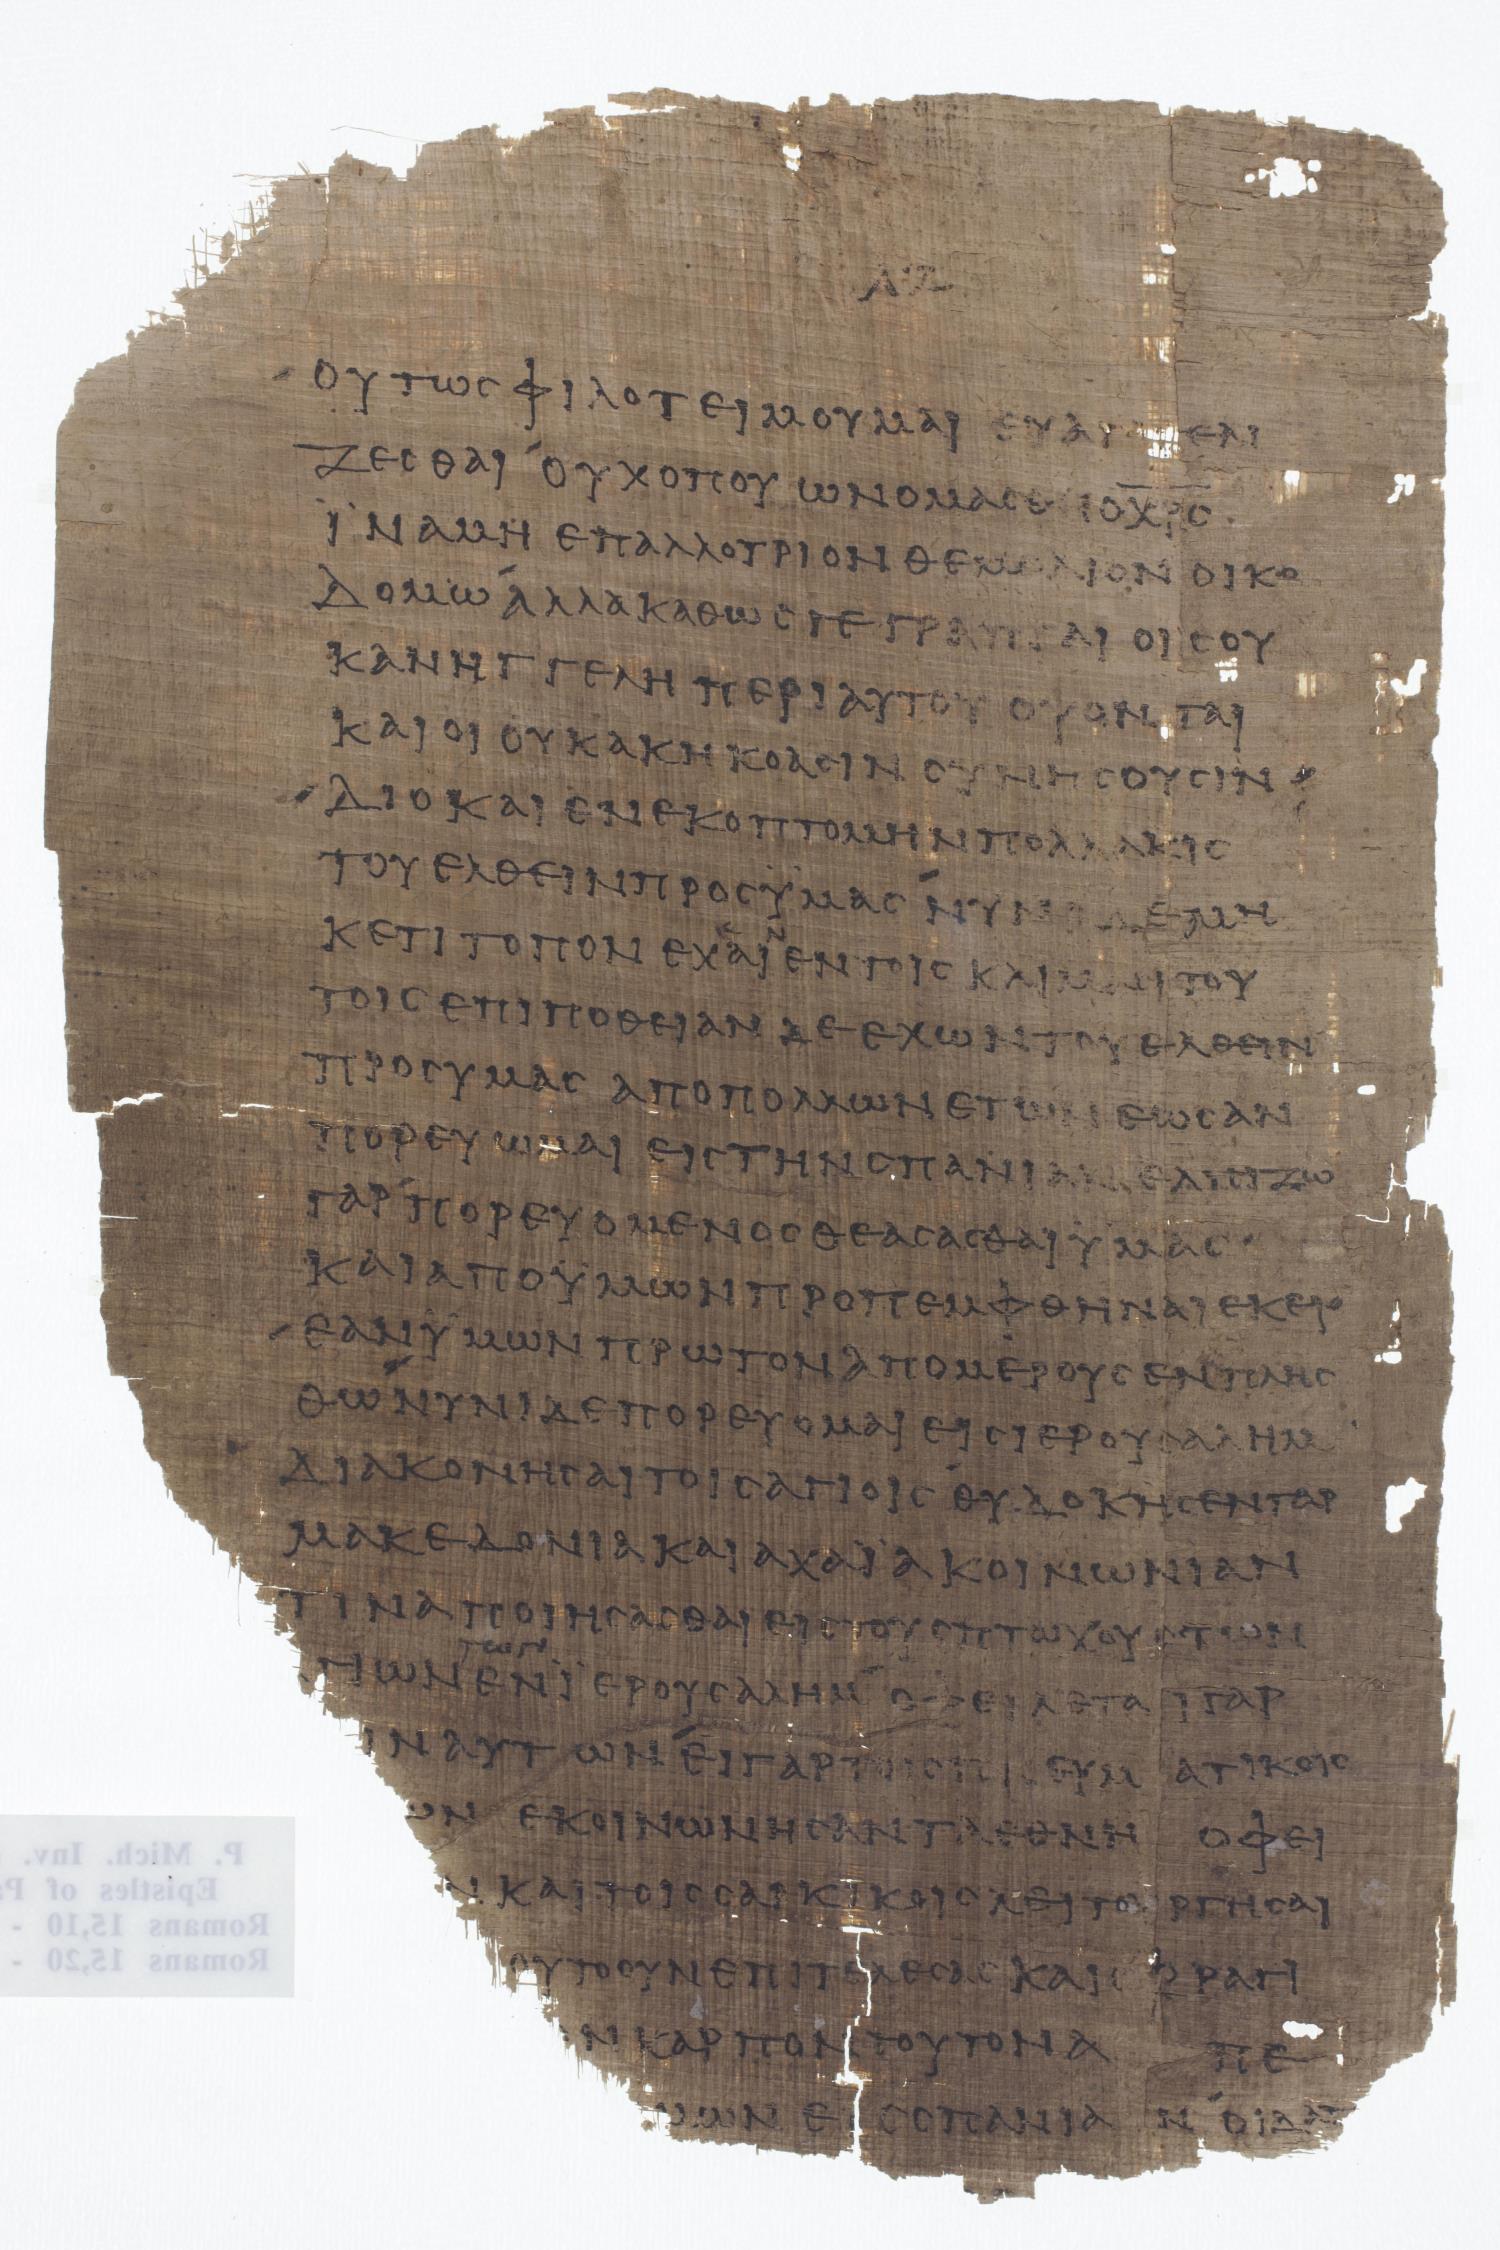 ΛΖ
ΟΥΤΩϹ ΦΙΛΟΤΕΙΜΟΥΜΑΙ ΕΥΑΓΓΕΛΙ
ΖΕϹΘΑΙ ΟΥΧ ΟΠΟΥ ΩΝΟΜΑϹΘΗ Ο ΧΡϹ
ΪΝΑ ΜΗ ΕΠ ΑΛΛΟΤΡΙΟΝ ΘΕΜΕΛΙΟΝ ΟΙΚΟ
ΔΟΜΩ ΑΛΛΑ ΚΑΘΩϹ ΓΕΓΡΑΠΤΑΙ ΟΙϹ ΟΥ
Κ ΑΝΗΓΓΕΛΗ ΠΕΡΙ ΑΥΤΟΥ ΟΨΟΝΤΑΙ
ΚΑΙ ΟΙ ΟΥΚ ΑΚΗΚΟΑϹΙΝ ϹΥΝΗϹΟΥϹΙΝ
ΔΙΟ ΚΑΙ ΕΝΕΚΟΠΤΟΜΗΝ ΠΟΛΛΑΚΙϹ
ΤΟΥ ΕΛΘΕΙΝ ΠΡΟϹ ΫΜΑϹ ΝΥΝΙ ΔΕ ΜΗ
ΚΕΤΙ ΤΟΠΟΝ ΕΧΑΙ ΕΝ ΤΟΙϹ ΚΛΙΜΑϹΙ ΤΟΥ
ΤΟΙϹ ΕΠΙΠΟΘΕΙΑΝ ΔΕ ΕΧΩΝ ΤΟΥ ΕΛΘΕΙΝ
ΠΡΟϹ ΥΜΑϹ ΑΠΟ ΠΟΛΛΩΝ ΕΤΩΝ ΕΩϹ ΑΝ
ΠΟΡΕΥΩΜΑΙ ΕΙϹ ΤΗΝ ϹΠΑΝΙΑΝ ΕΛΠΙΖΩ
ΓΑΡ ΠΟΡΕΥΟΜΕΝΟϹ ΘΕΑϹΑϹΘΑΙ ΫΜΑϹ
ΚΑΙ ΑΠΟ ΫΜΩΝ ΠΡΟΠΕΜΦΘΗΝΑΙ ΕΚΕΙ
ΕΑΝ ΫΜΩΝ ΠΡΩΤΟΝ ΑΠΟ ΜΕΡΟΥϹ ΕΝΠΛΗϹ
ΘΩ ΝΥΝΙ ΔΕ ΠΟΡΕΥΟΜΑΙ ΕΙϹ ΙΕΡΟΥϹΑΛΗΜ
ΔΙΑΚΟΝΗϹΑΙ ΤΟΙϹ ΑΓΙΟΙϹ ΘΥΔΟΚΗϹΕΝ ΓΑΡ
ΜΑΚΕΔΟΝΙΑ ΚΑΙ ΑΧΑΪΑ ΚΟΙΝΩΝΙΑΝ
ΤΙΝΑ ΠΟΙΗϹΑϹΘΑΙ ΕΙϹ ΤΟΥϹ ΠΤΩΧΟΥϹ ΤΩΝ
ΓΙΩΝ ΤΩΝ ΕΝ ΪΕΡΟΥϹΑΛΗΜ ΟΦΕΙΛΕΤΑΙ ΓΑΡ
ΙΝ ΑΥΤΩΝ ΕΙ ΓΑΡ ΤΟΙϹ ΠΝΕΥΜΑΤΙΚΟΙϹ
ΩΝ ΕΚΟΙΝΩΝΗϹΑΝ ΤΑ ΕΘΝΗ ΟΦΕΙ
Ν ΚΑΙ ΤΟΙϹ ϹΑΡΚΙΚΟΙϹ ΛΕΙΤΟΥΡΓΗϹΑΙ
ΟΥΤΟ ΟΥΝ ΕΠΙΤΕΛΕϹΑϹ ΚΑΙ ϹΦΡΑΓΙ
Ν ΚΑΡΠΟΝ ΤΟΥΤΟΝ Α ΠΕ
ΥΜΩΝ ΕΙϹ ϹΠΑΝΙΑΝ ΟΙΔΑ
P. Mich. Inv.
Epistles of Pa
Romans 15,10 -
Romans 15,20 -